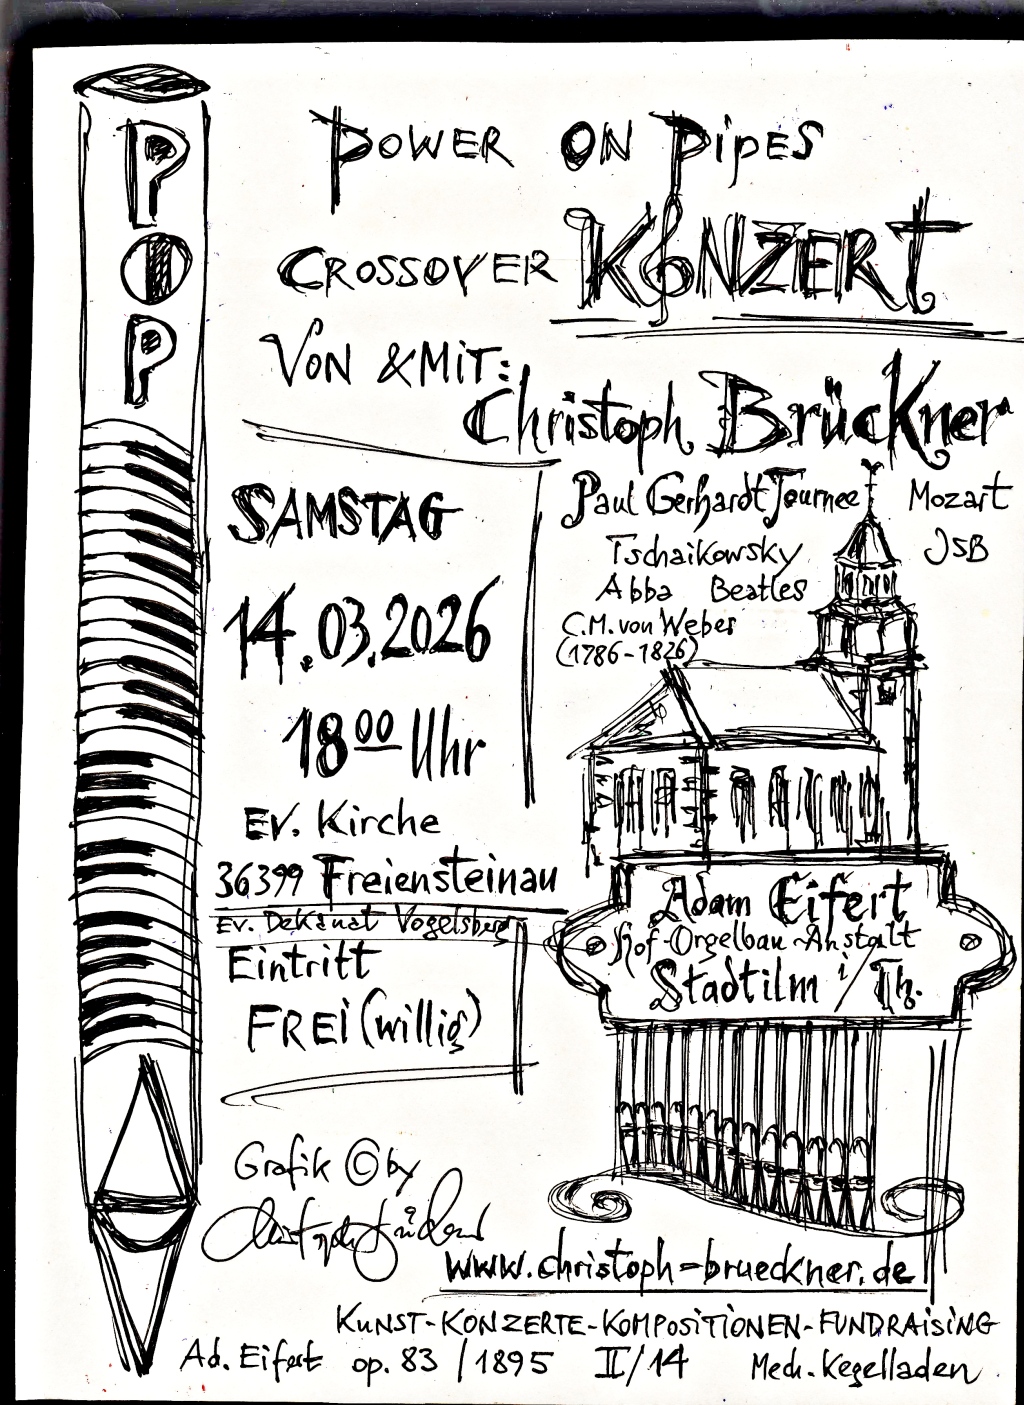 POP
POWER ON PIPES
CROSSOVER KONZERT
VON & MIT:
Christoph Brückner
SAMSTAG
14.03.2026
18⁰⁰ Uhr
Paul Gerhardt Tournee Mozart
Tschaikowsky JSB
Abba Beatles
C.M. von Weber
(1786-1826)
Ev. Kirche
36399 Freiensteinau
Ev. Dekanat Vogelsberg
Eintritt
FREI (willig)
Adam Eifert
Hof-Orgelbau-Anstalt
Stadtilm i/Th.
Grafik © by
www.christoph-brueckner.de
KUNST-KONZERTE-KOMPOSITIONEN-FUNDRAISING
Ad. Eifert op. 83 / 1895 II/14 Mech. Kegelladen